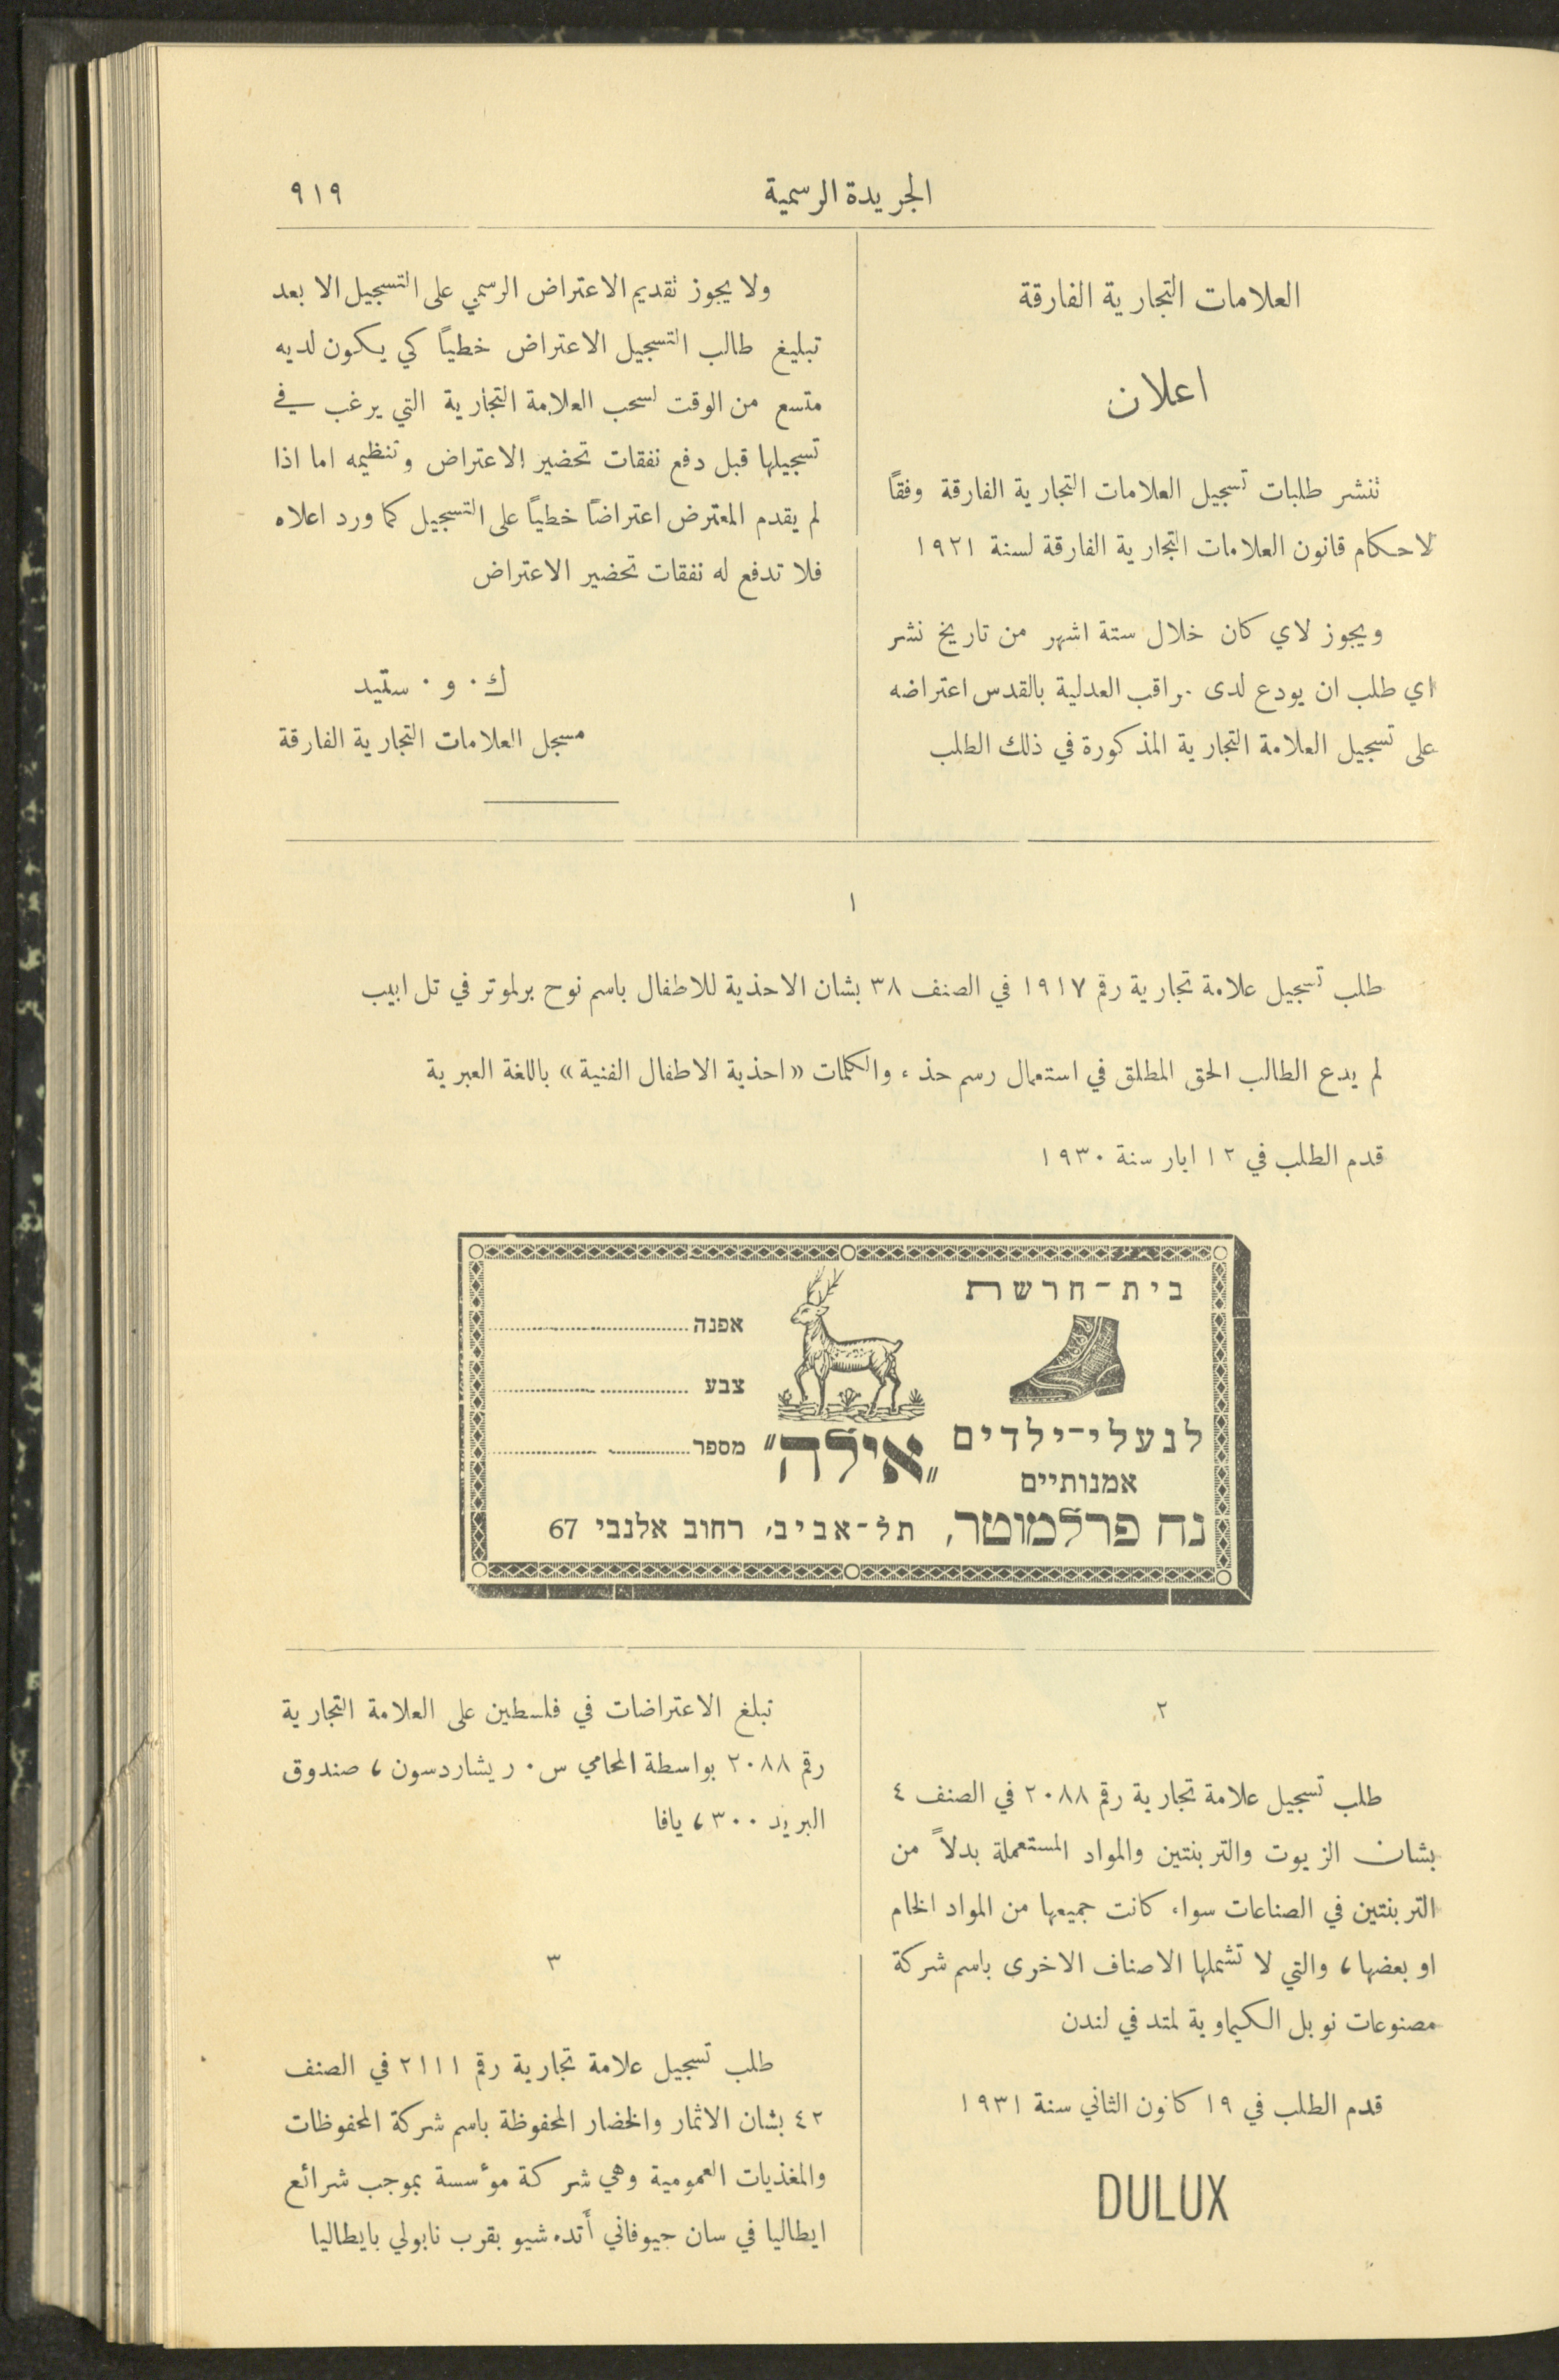 الجريدة الرسمية
٩١٩
العلامات التجارية الفارقة
اعلان
تنشر طلبات تسجيل العلامات التجارية الفارقة وفقاً
لاحكام قانون العلامات التجارية الفارقة لسنة ١٩٢١
ويجوز لاي كان خلال ستة اشهر من تاريخ نشر
اي طلب ان يودع لدى مراقب العدلية بالقدس اعتراضه
على تسجيل العلامة التجارية المذكورة في ذلك الطلب
ولا يجوز تقديم الاعتراض الرسمي على التسجيل الا بعد
تبليغ طالب التسجيل الاعتراض خطياً كي يكون لديه
متسع من الوقت لسحب العلامة التجارية التي يرغب في
تسجيلها قبل دفع نفقات تحضير الاعتراض وتنظيمه اما اذا
لم يقدم المعترض اعتراضاً خطياً على التسجيل كما ورد اعلاه
فلا تدفع له نفقات تحضير الاعتراض
ك. و. ستيد
مسجل العلامات التجارية الفارقة
١
طلب تسجيل علامة تجارية رقم ١٩١٧ في الصنف ٣٨ بشان الاحذية للاطفال باسم نوح برلموتر في تل ابيب
لم يدع الطالب الحق المطلق في استعمال رسم حذء والكلمات «احذية الاطفال الفنية» باللغة العبرية
قدم الطلب في ١٢ ايار سنة ١٩٣٠
בית-חרשת
לנעלי-ילדים
אמנותיים
„אילה"
אפנה
צבע
מספר
נח פרלמוטר, תל-אביב, רחוב אלנבי 67
٢
طلب تسجيل علامة تجارية رقم ٢٠٨٨ في الصنف ٤
بشان الزيوت والتربنتين والمواد المستعملة بدلاً من
التربنتين في الصناعات سواء كانت جميعها من المواد الخام
او بعضها، والتي لا تشملها الاصناف الاخرى باسم شركة
مصنوعات نوبل الكيماوية لمتد في لندن
قدم الطلب في ١٩ كانون الثاني سنة ١٩٣١
DULUX
تبلغ الاعتراضات في فلسطين على العلامة التجارية
رقم ٢٠٨٨ بواسطة المحامي س. ريشاردسون، صندوق
البريد ٣٠٠، يافا
٣
طلب تسجيل علامة تجارية رقم ٢١١١ في الصنف
٤٢ بشان الاثمار والخضار المحفوظة باسم شركة المحفوظات
والمغذيات العمومية وهي شركة مؤسسة بموجب شرائع
ايطاليا في سان جيوفاني أتده شيو بقرب نابولي بايطاليا